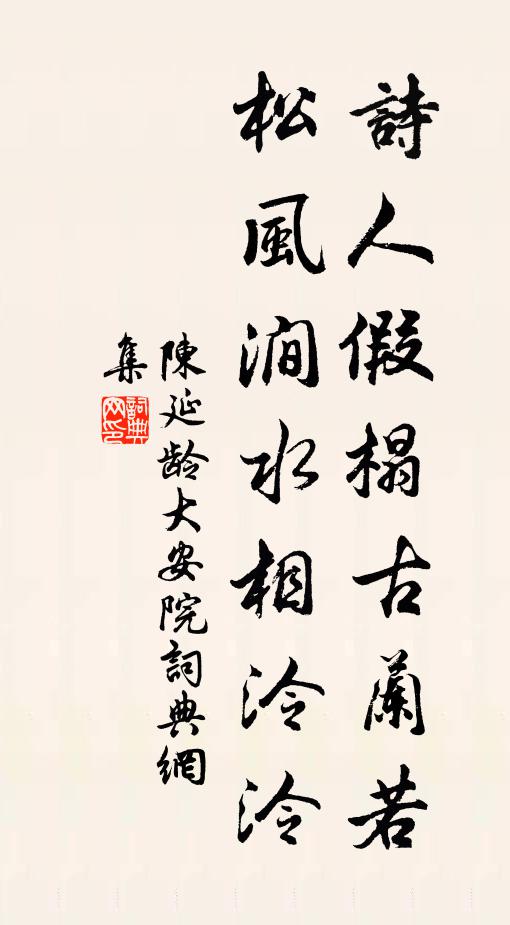 詩人假榻古蘭若
松風澗水相泠泠
陳延龄大安院詞典網
集
詞典网印